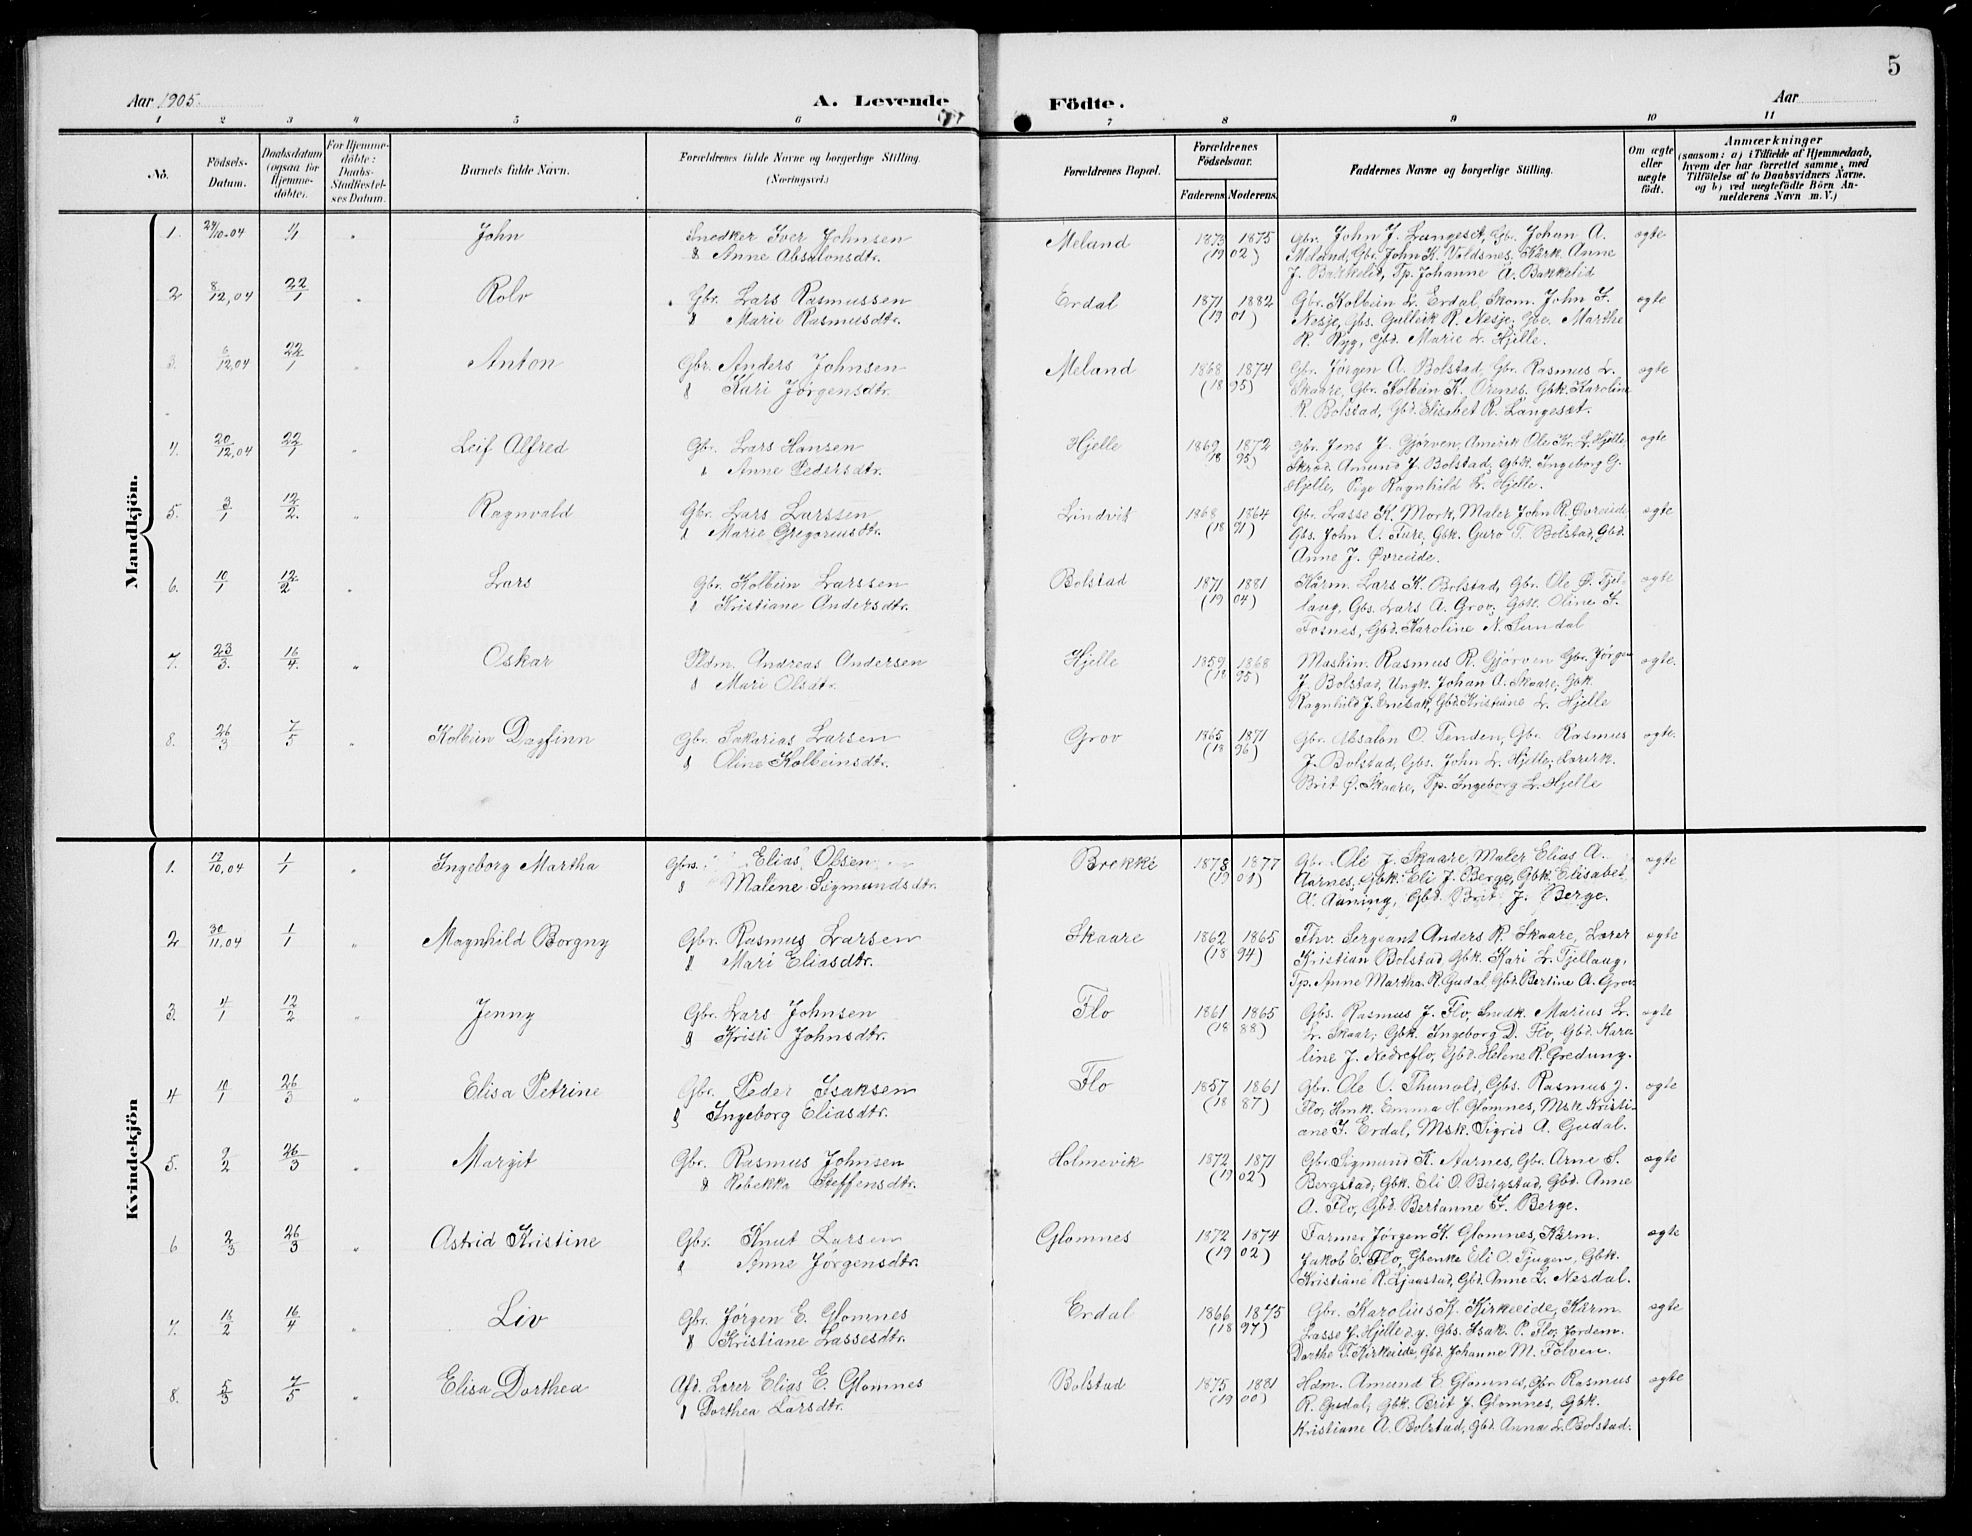 5
Aar 1905.
A. Levende Födte.
Aar
1 2 3 4 5 6 7 8 9 10 11
No.
Födsels-Datum.
Daabsdatum (ogsaa for Hjemme-döbte).
For Hjemme-döbte: Daabs-Stadfæstel-ses Datum.
Barnets fulde Navn.
Forældrenes fulde Navne og borgerlige Stilling.
(Næringsvei.)
Forældrenes Bopæl.
Forældrenes Födselsaar.
Faderens. Moderens.
Faddernes Navne og borgerlige Stilling.
Om ægte eller uægte födt.
Anmærkninger
(saasom: a) i Tilfælde af Hjemmedaab,
hvem der har forrettet samme, med
Tilföielse af to Daabsvidners Navne.
og b) ved uægtefödte Börn An-
melderens Navn m. V.)
Mandkjön.
1. 24/10-04 1/1 " John Snedker Iver Johnsen Meland 1873 1875 Gbr. John J. Langeset, Gbr. Johan A. ægte
" Anne Absalonsdtr. (19 02) Meland, Gbr. John K. Voldsnes. Kårk. Anne
J. Bakkelid, Tp. Johanne A. Bakkelid
2 8/12,04 22/1 " Rolv Gbr. Lars Rasmussen Erdal 1871 1882 Gbr. Kolbein L. Erdal, Skom. John I. ægte
" Marie Rasmusdtr. (19 01) Nesje, Gbs. Gulleik R. Nesje, Gbr. Marthe
R. Ryg, Gbd. Marie L. Hjelle.
3. 6/12,04 22/1 " Anton Gbr. Anders Johnsen Meland 1868 1874 Gbr. Jørgen A. Bolstad, Gbr. Rasmus L. ægte
" Kari Jørgensdtr. (18 95) Skaare, Gbr. Kolbein K. Ørenes. Gbk. Karoline
R. Bolstad, Gbd. Elisabet R. Langeset.
4. 20/12,04 22/1 " Leif Alfred Gbr. Lars Hansen Hjelle 1869 1872 Gbr. Jens J. Gjørven, Amerik. Ole Kr. L. Hjelle ægte
" Anne Pedersdtr. (18 95) Skræd. Amund J. Bolstad, Gbk. Ingeborg G.
Hjelle, Pige Ragnhild L. Hjelle.
5. 3/1 12/2. " Ragnvald Gbr. Lars Larssen Lindvik 1868 1864 Gbr. Lasse K. Mork, Maler John R. Øvreeide ægte
" Marie Gregoriusdtr. (18 91) Gbs. John O. Fure, Gbk. Guro T. Bolstad, Gbd.
Anne J. Øvreeide.
6. 10/1 12/2 " Lars Gbr. Kolbein Larssen Bolstad 1871 1881 Kårm. Lars K. Bolstad, Gbr. Ole Ø. Tjel- ægte
" Kristiane Andersdtr. (19 04) laug, Gbs. Lars A. Grov, Gbk. Oline I.
Fosnes, Gbd. Karoline N. Sundal
7. 23/3. 16/4. " Oskar Pldm. Andreas Andersen Hjelle 1859 1868 Maskin. Rasmus R. Gjørven Gbr. Jørgen ægte.
" Mari Olsdtr. (18 95) J. Bolstad, Ungk. Johan A. Skaare, Gbk.
Ragnhild J. Enebak, Gbd. Kristiane L. Hjelle
8. 26/3 7/5 " Kolbein Dagfinn Gbr. Sakarias Larsen Grov 1865 1871 Gbr. Absalon O. Tenden, Gbr. Rasmus ægte.
" Oline Kolbeinsdtr. (18 96) J. Bolstad, Gbs. John L. Hjelle, Lærerk.
Brit Ø. Skaare, Tp. Ingeborg L. Hjelle
Kvindekjön
1. 12/10,04 1/1 " Ingeborg Martha Gbrs. Elias Olsen Brekke 1878 1877 Gbr. Ole J. Skaare, Maler Elias A. ægte
" Malene Sigmundsdtr. (19 01) Aarnes, Gbk. Eli J. Berge, Gbk. Elisabet
A. Aaning, Gbd. Brit J. Berge.
2 30/11,04 1/1 " Magnhild Borgny Gbr. Rasmus Larsen Skaare 1862 1865 Fhv. Sergeant Anders R. Skaare, Lærer ægte
" Mari Eliasdtr. (18 94) Kristian Bolstad, Gbk. Kari L. Tjellaug,
Tp. Anne Martha R. Gudal, Gbd. Bertine A. Grov.
3. 4/1 12/2 " Jenny Gbr. Lars Johnsen Flo 1861 1865 Gbs. Rasmus J. Flo, Snedk. Marius L. ægte
" Kristi Johnsdtr. (18 88) L. Skaar, Gbk. Ingeborg D. Flo, Gbd. Karo-
line J. Nedreflo, Gbd. Helene R. Gredung.
4 10/1 26/3 " Elisa Petrine Gbr. Peder Isaksen Flo 1857 1861 Gbr. Ole O. Thunold, Gbs. Rasmus J. ægte
" Ingeborg Eliasdtr. (18 87) Flo, Hmk. Emma H. Glomnes, Msk. Kristi-
ane I. Erdal, Msk. Sigrid A. Gudal.
5. 9/2 26/3 " Margit Gbr. Rasmus Johnsen Holmevik 1872 1871 Gbr. Sigmund K. Aarnes, Gbr. Arne S. ægte
" Rebekka Steffensdtr. (19 02) Bergstad, Gbk. Eli O. Bergstad, Gbd. Anne
A. Flo, Gbd. Bertanne I. Berge.
6 2/3 26/3 " Astrid Kristine Gbr. Knut Larsen Glomnes 1872 1874 Farmer Jørgen K. Glomnes, Kårm. ægte
" Anne Jørgensdtr. (19 02) Jakob E. Flo, Gbenke Eli O. Tjugen, Gbk.
Kristiane R. Ljaastad, Gbd. Anne L. Nesdal.
7. 16/2 16/4 " Liv Gbr. Jørgen E. Glomnes Erdal 1866 1875 Gbr. Karolius K. Kirkeeide, Kårm. ægte
" Kristiane Lassesdtr. (18 97) Lasse J. Hjelle d.y. Gbs. Isak P. Flo, Jordem.
Dorthe T. Kirkeeide, Gbd. Johanne M. Folven.
8. 5/3 7/5 " Elisa Dorthea Afd. Lærer Elias E. Glomnes Bolstad 1875 1881 Hdm. Amund E Glomnes, Gbr. Rasmus ægte
" Dorthea Larsdtr. (19 00) R. Gudal, Gbk. Brit J. Glomnes, Gbk.
Kristiane A. Bolstad, Gbd. Anna L. Bolstad.